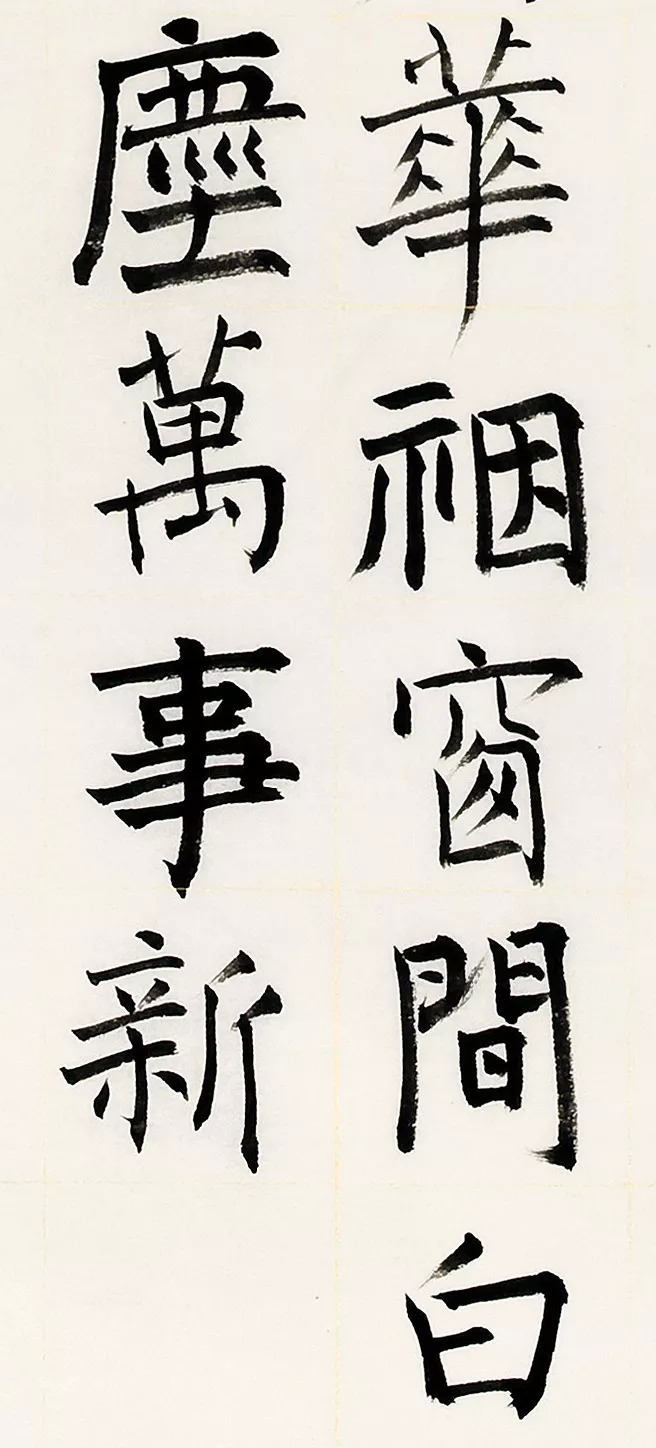 華䄄窗間白
塵萬事新